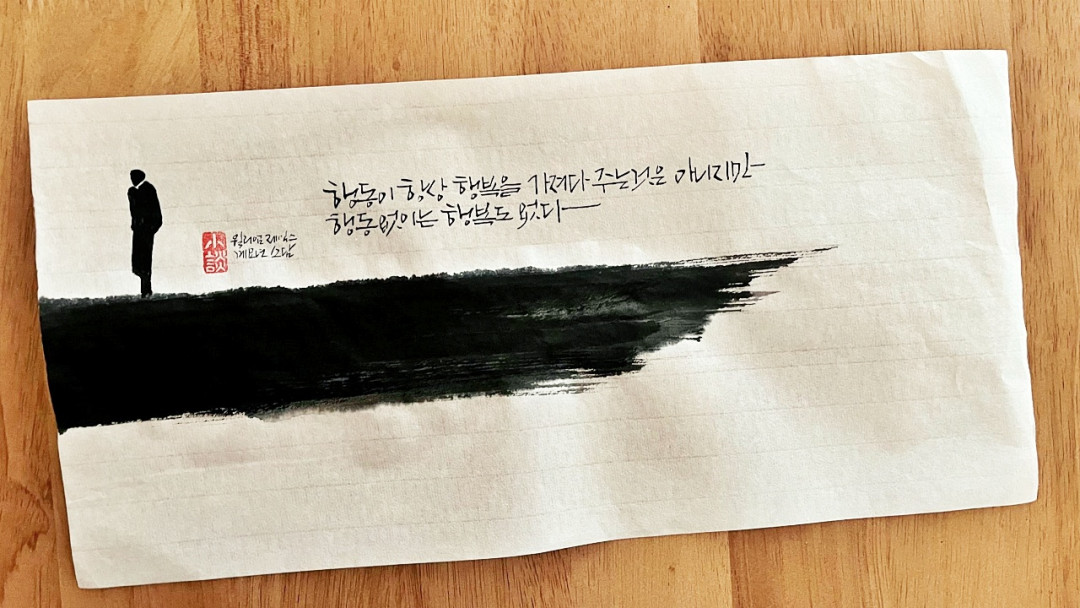 행동이 항상 행복을 가져다 주는것은 아니지만
행동없이는 행복도 없다
小談
윌리엄 제임스
계묘년 소담